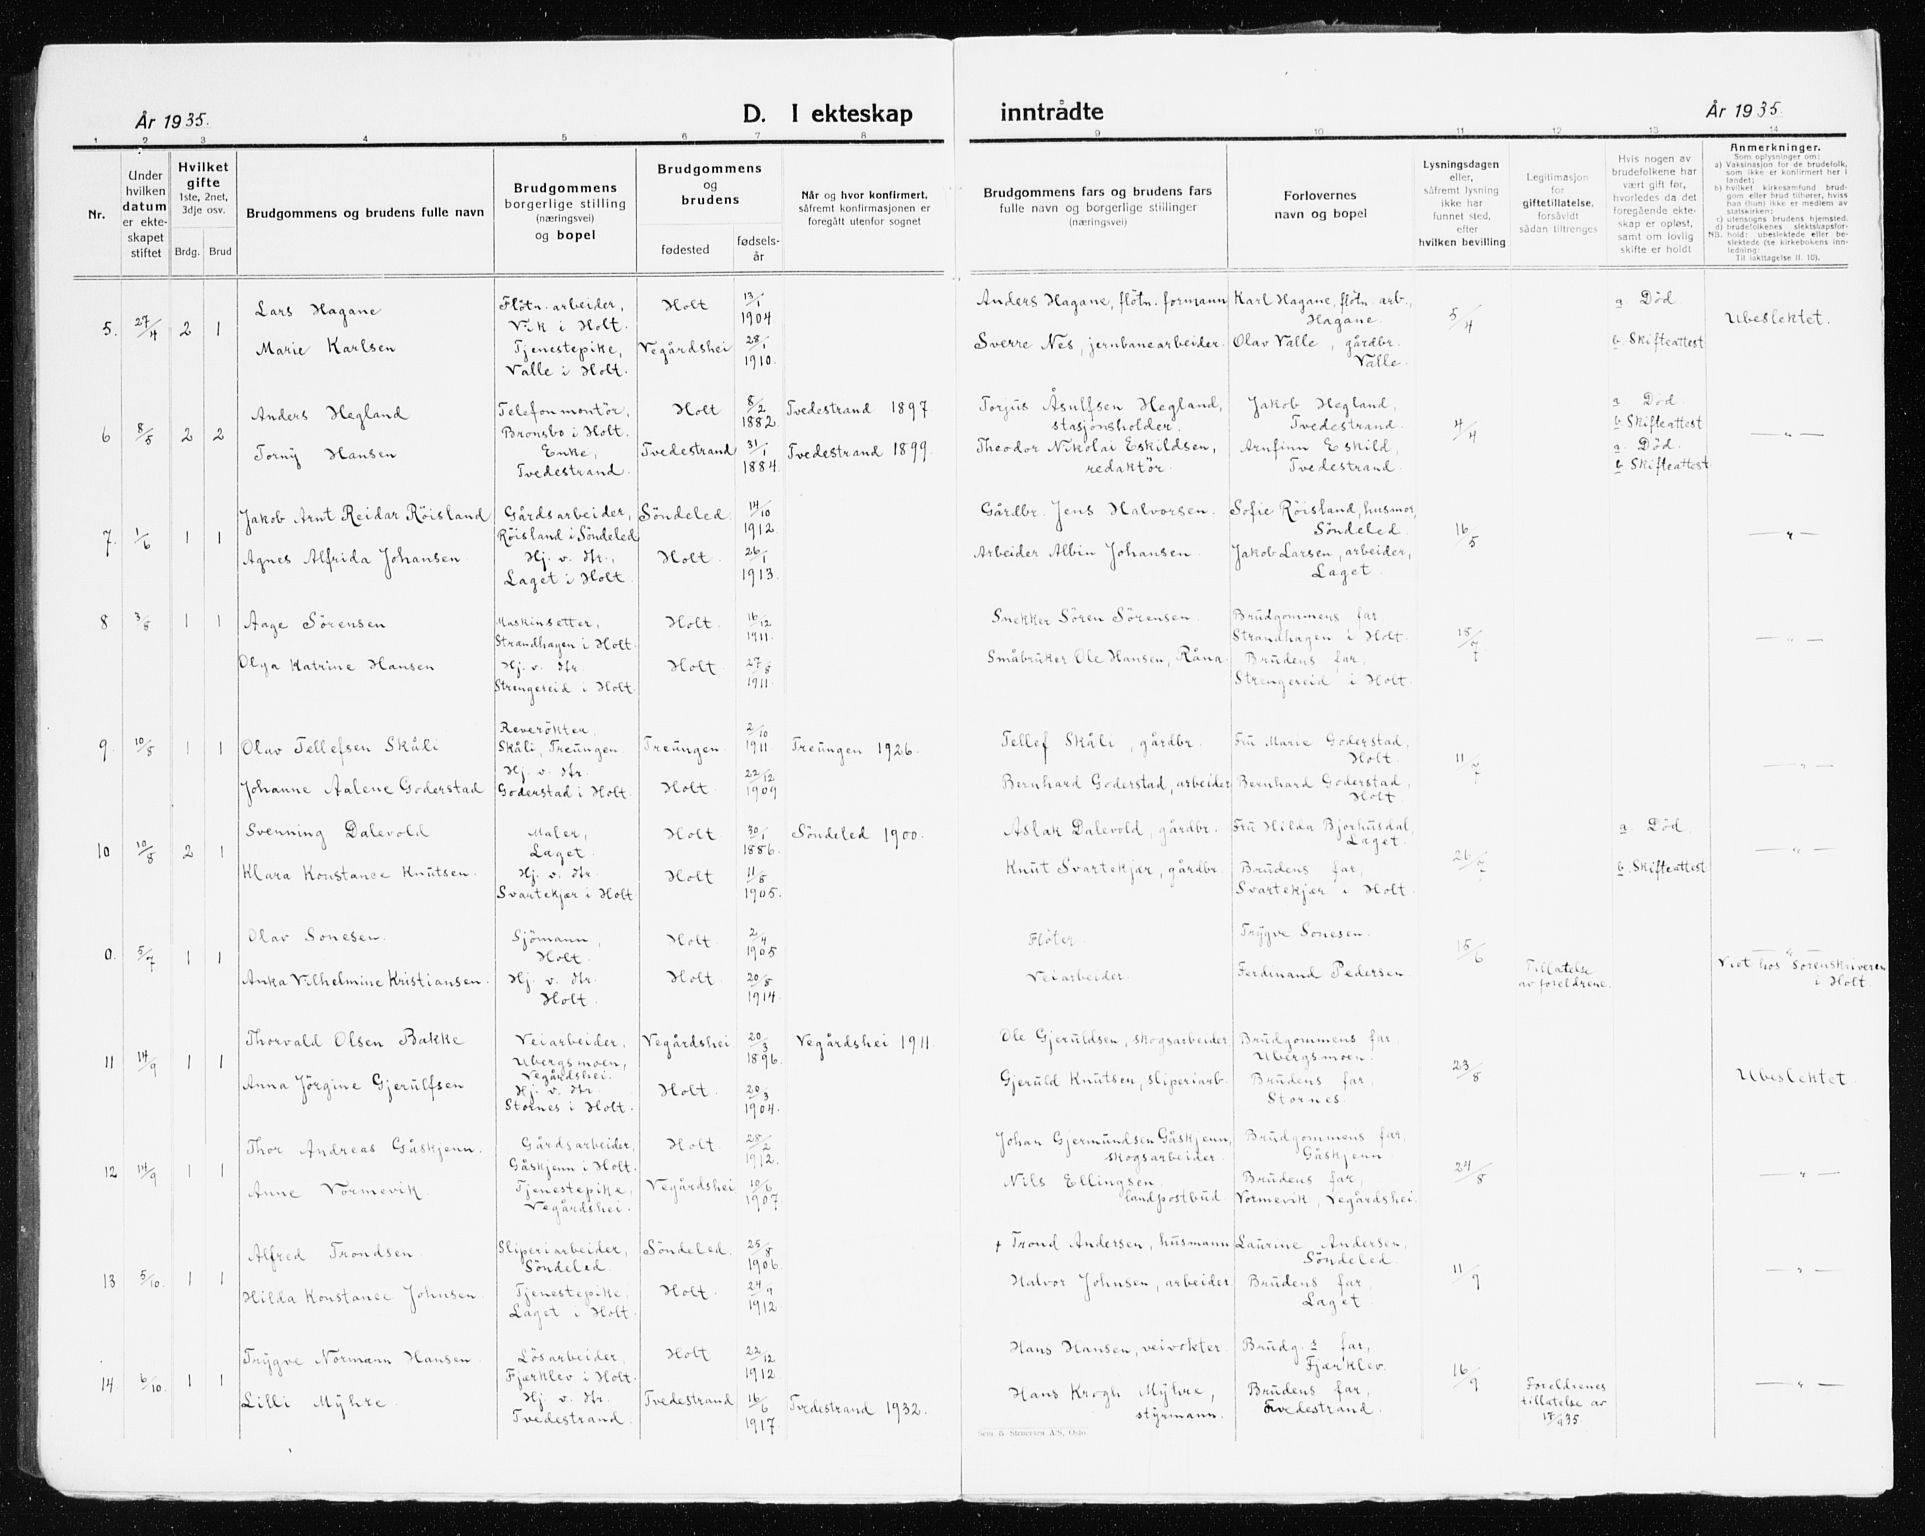 År 1935.
D. I ekteskap inntrådte
År 1935.
1 2 3 4 5 6 7 8 9 10 11 12 13 14
Nr.
Under hvilken datum er ekteskapet stiftet
Hvilket gifte
1ste, 2net, 3dje osv.
Brdg. Brud
Brudgommens og brudens fulle navn
Brudgommens borgerlige stilling (næringsvei) og bopel
Brudgommens og brudens
fødested
fødselsår
Når og hvor konfirmert,
såfremt konfirmasjonen er foregått utenfor sognet
Brudgommens fars og brudens fars
fulle navn og borgerlige stillinger
(næringsvei)
Forlovernes navn og bopel
Lysningsdagen eller, såfremt lysning ikke har funnet sted, efter hvilken bevilling
Legitimasjon for giftetillatelse, forsåvidt sådan tiltrenges
Hvis nogen av brudefolkene har vært gift før, hvorledes da det foregående ekteskap er opløst, samt om lovlig skifte er holdt
Anmerkninger.
Som oplysninger om:
a) Vaksinasjon for de brudefolk, som ikke er konfirmert her i landet;
b) hvilket kirkesamfund brudgom eller brud tilhører, hviss han (hun) ikke er medlem av statskirken;
c) utensogns brudens hjemsted.
d) brudefolkenes slektskapsforhold: ubeslektede eller beslektede (se kirkebokens innledning:
NB. Til iakttagelse II. 10).
5. 27/4 2 1
Lars Hagane
Flötn. arbeider, Vik i Holt.
Holt
13/1 1904
Anders Hagane, flötn. formann
Karl Hagane, flötn. arb., Hagane.
5/4
a. Död.
Ubeslektet.
Marie Karlsen
Tjenestepike, Valle i Holt.
Vegårdshei
28/1 1910.
Sverre Nes, jernbanearbeider.
Olav Valle, gårdbr. Valle.
b. Skifteattest
6 8/5 2 2
Anders Hegland
Telefonmontör, Bronsbo i Holt.
Holt
8/2 1882.
Tvedestrand 1897
Torjus Åsulfsen Hegland, stasjonsholder.
Jakob Hegland, Tvedestrand.
4/4
a. Död.
b. Skifteattest
—„—
Torny Hansen
Enke, Tvedestrand.
Tvedestrand
31/1 1884.
Tvedestrand 1899.
Theodor Nikolai Eskildsen, redaktör.
Arnfinn Eskild, Tvedestrand.
a. Död.
b. Skifteattest
7. 1/6 1 1
Jakob Arnt Reidar Röisland
Gårdsarbeider, Röisland i Söndeled
Söndeled.
14/10 1912.
Gårdbr. Jens Halvorsen.
Sofie Röisland, husmor, Söndeled.
16/5
—„—
Agnes Alfrida Johansen.
Hj. v. Hr., Laget i Holt.
Holt.
26/1 1913.
Arbeider Albin Johansen.
Jakob Larsen, arbeider, Laget.
8 3/8 1 1
Aage Sörensen
Maskinsetter, Strandhagen i Holt.
Holt.
16/12 1911.
Snekker Sören Sörensen.
Brudgommens far Strandhagen i Holt.
18/7
—„—
Olga Katrine Hansen
Hj. v. Hr. Strengereid i Holt.
Holt
27/8 1911.
Småbruker Ole Hansen, Råna.
Brudens far, Strengereid i Holt.
9. 10/8 1 1
Olav Tellefsen Skåli
Reverökter, Skåli, Treungen.
Treungen.
2/10 1911.
Treungen 1926.
Tellef Skåli, gårdbr.
Fru Marie Goderstad, Holt.
11/7
—„—
Johanne Aalene Goderstad
Hj. v. Hr. Goderstad i Holt.
Holt.
22/12 1909
Bernhard Goderstad, arbeider
Bernhard Goderstad, Holt.
10 10/8 2 1
Svenning Dalevold
Maler, Laget.
Holt.
30/1 1886.
Söndeled 1900.
Aslak Dalevold, gårdbr.
Fru Hilda Bjorhusdal, Laget.
26/7
a. Död.
—„—
Klara Konstance Knutsen.
Hj. v. Hr. Svartekjær i Holt
Holt
11/8 1905.
Knut Svartekjær, gårdbr.
Brudens far, Svartekjær i Holt.
b. Skifteattest
0. 5/7 1 1
Olav Sonesen.
Sjömann, Holt.
Holt.
2/4 1905
Flöter.
Trygve Sonesen.
15/6
—„—
Anka Vilhelmine Kristiansen.
Hj. v. Hr. Holt.
Holt.
20/8 1914.
Veiarbeider.
Ferdinand Pedersen
Tillatelse av foreldrene.
Viet hos Sorenskriveren i Holt.
11 14/9 1 1
Thorvald Olsen Bakke
Veiarbeider, Ubergsmoen, Vegårdshei.
Vegårdshei
20/3 1896.
Vegårdshei 1911.
Ole Gjeruldsen, skogsarbeider
Brudgommens far, Ubergsmoen.
23/8
Ubeslektet.
Anna Jörgine Gjerulfsen
Hj. v. Hr. Stornes i Holt.
Holt.
20/3 1904.
Gjeruld Knutsen, sliperiarb.
Brudens far, Stornes.
12 14/9 1 1
Thor Andreas Gåskjenn.
Gårdsarbeider, Gåskjenn i Holt.
Holt.
28/2 1912.
Johan Gjermundsen Gåskjenn, skogsarbeider.
Brudgommens far, Gåskjenn.
24/8
—„—
Anne Vormevik.
Tjenestepike, Vegårdshei.
Vegårdshei
10/6 1907
Nils Ellingsen landpostbud.
Brudens far, Vormevik, Vegårdshei.
13 5/10. 1 1
Alfred Trondsen.
Sliperiarbeider, Söndeled.
Söndeled.
25/8 1906.
+ Trond Andersen, husmann
Laurine Andersen, Söndeled.
11/9
—„—
Hilda Konstance Johnsen.
Tjenestepike, Laget i Holt.
Holt.
24/9 1912.
Halvor Johnsen, arbeider
Brudens far, Laget.
14. 6/10. 1 1
Trygve Normann Hansen.
Lösarbeider, Fjærklev i Holt.
Holt
22/12 1912.
Hans Hansen, veivokter.
Brudg. s far, Fjærklev.
16/9
—„—
Lilli Myhre.
Hj. v. Hr. Tvedestrand.
Tvedestrand
16/6 1917.
Tvedestrand 1932.
Hans Krogh Myhre, styrmann.
Brudens far, Tvedestrand.
Foreldrenes tillatelse av 17/9 35
Sem & Stenersen A/S, Oslo.